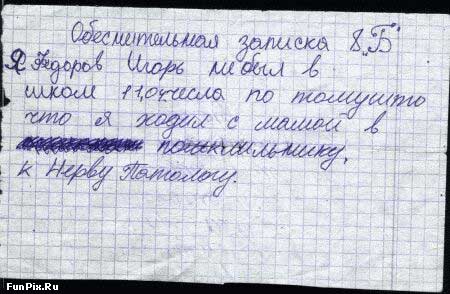 Обеснительная записка 8 „Б"
Я Федоров Игорь небыл в
школ 11,04числа по томушто
что я ходил с мамой в
к Нерву Потологу.
FunPix.Ru